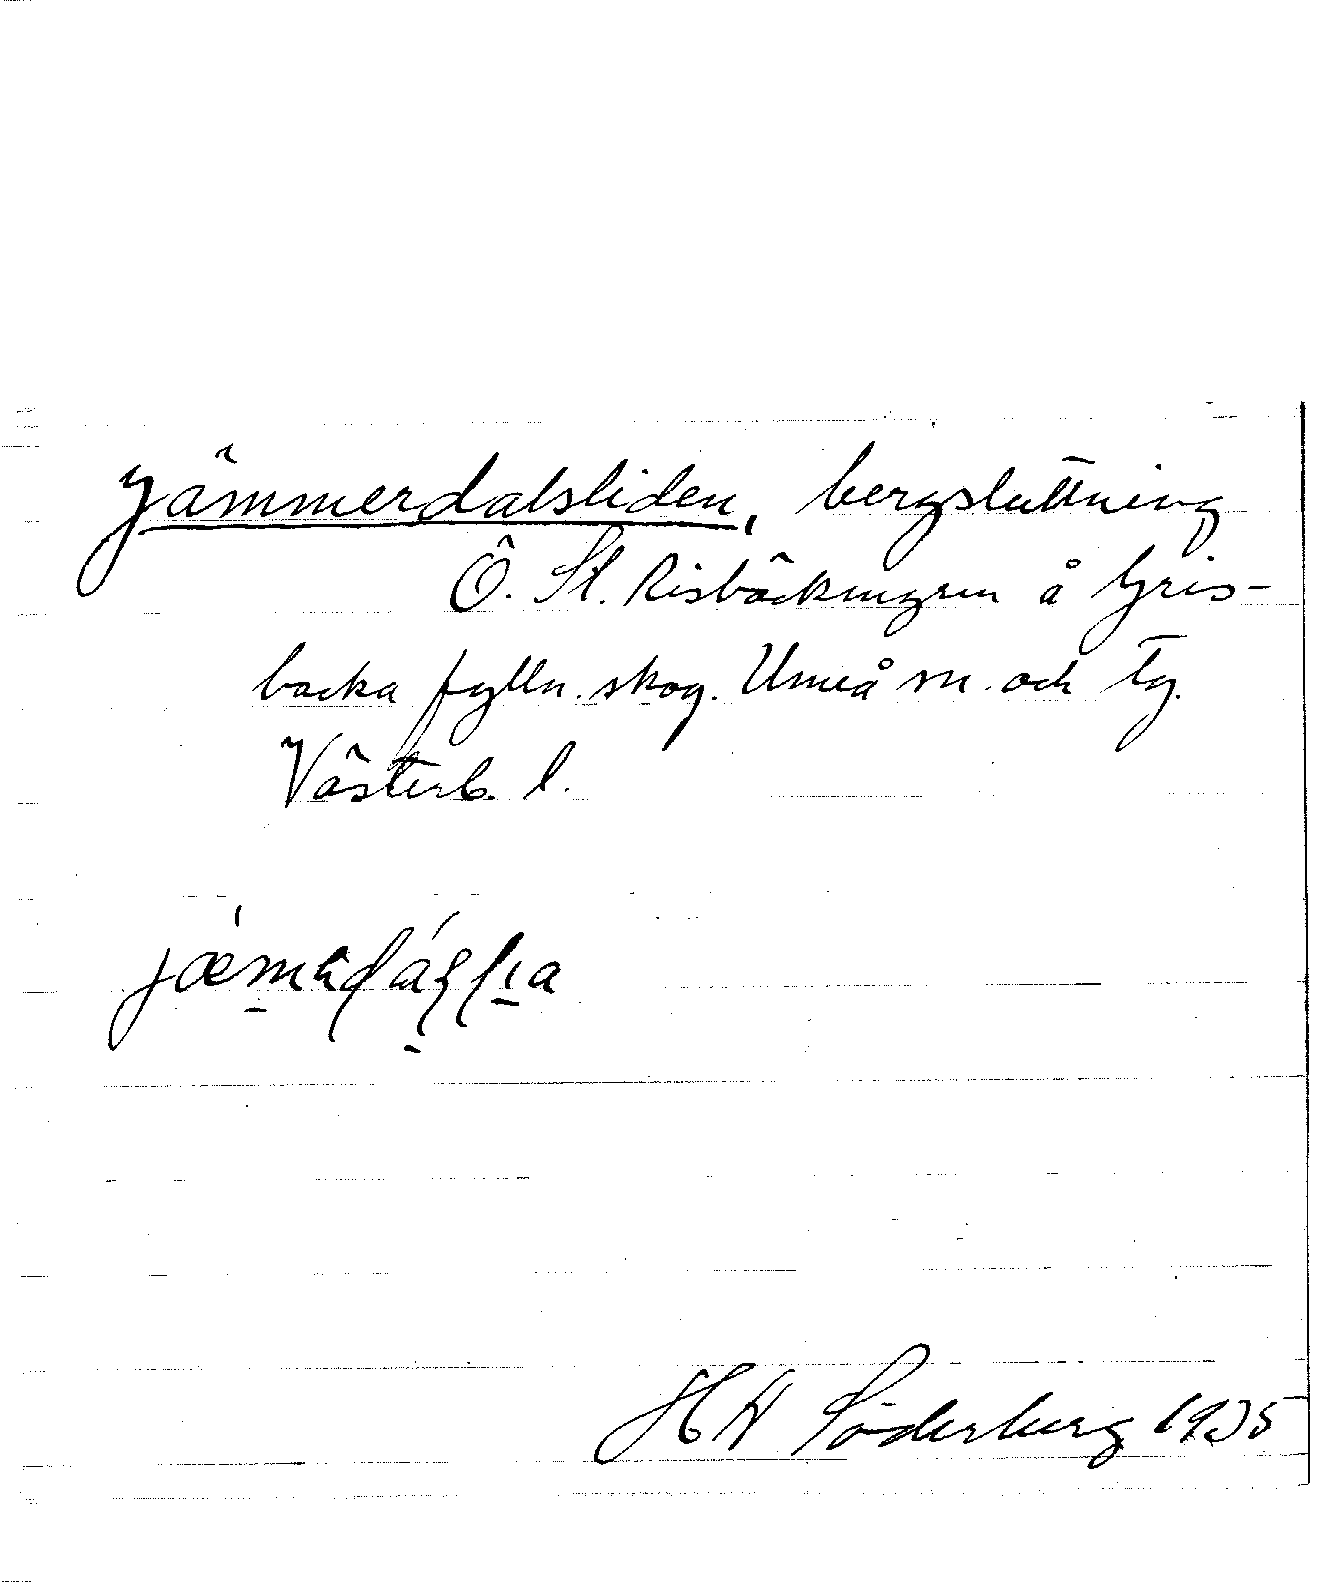 Jämmerdalsliden, bergsluttning
Ö. St. Risbäckmyren å Gris-
backa fylln. skog. Umeå sn. och tg.
Västerb. l.
H W Söderberg 1935